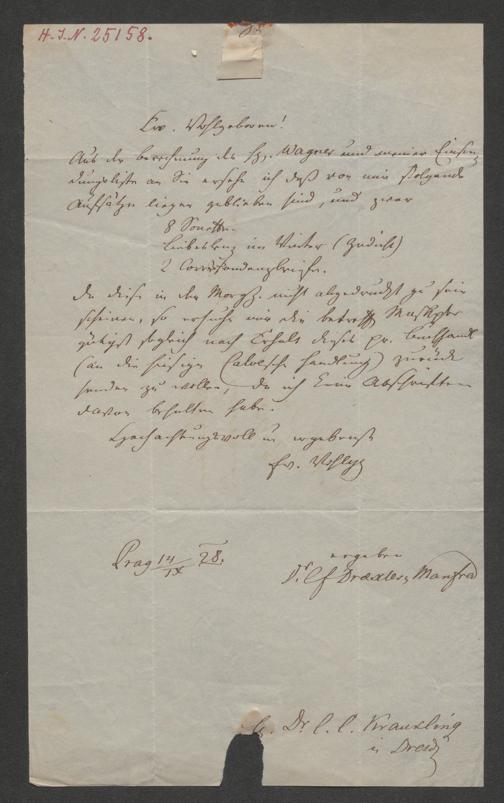 H.I.N. 25158.
Ew. Wohlgeboren!
Aus der Berechnung des H. Wagner und meiner Einsen
dungsliste an Sie ersehe ich daß von mir folgende
Aufsätze liegen geblieben sind, und zwar
8 Sonette.
im Winter (Gedicht)
2 Correspondenzbriefe.
Da diese in der Morgz. nicht abgedruckt zu sein
scheinen, so ersuche mir die betreff
gütigst sogleich nach Erhalt dieses pr. Buchhandl
(an die hiesige Calvesche Handlung) zurück
senden zu wollen, da ich keine Abschriften
davon behalten habe.
Hochachtungsvoll u ergebenst
Ew. Wohlg
Prag 14/IX 28.
ergeben
Dr. Cf Draxler Manfred
Dr. C. C. Kraukling
in Dresd